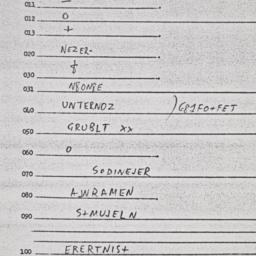 011 —
012 O
013 +
020 NEZER-
030 $
031 NJONJE
040 UNTERNOZ )GP1FO+FET
050 GRUBLT XX
060 O
070 SODINEJER
080 AJNRAMEN
090 S+MUJELN
100 ERERTNIS+